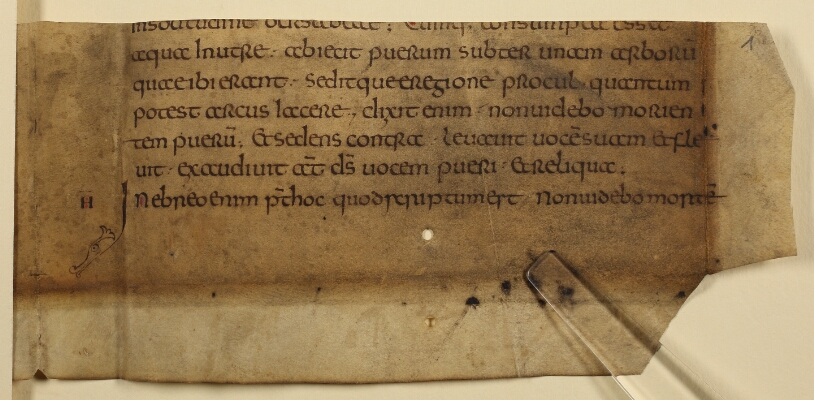 in solitudine bersabeae. Cumq; consumpta esset
aqua In utre. abiecit puerum subter unam arborū
quae ibi erant. Seditque eregione procul. quantum
potest arcus Iacere, dixit enim. non uidebo morien
tem puerū. Et sedens contra. Leuauit uocē suam et fle
uit. exaudiuit at̄ d̄s uocem pueri. Et reliqua.
H In ebreo enim p̄t hoc quod scriptum est Non uidebo mortē